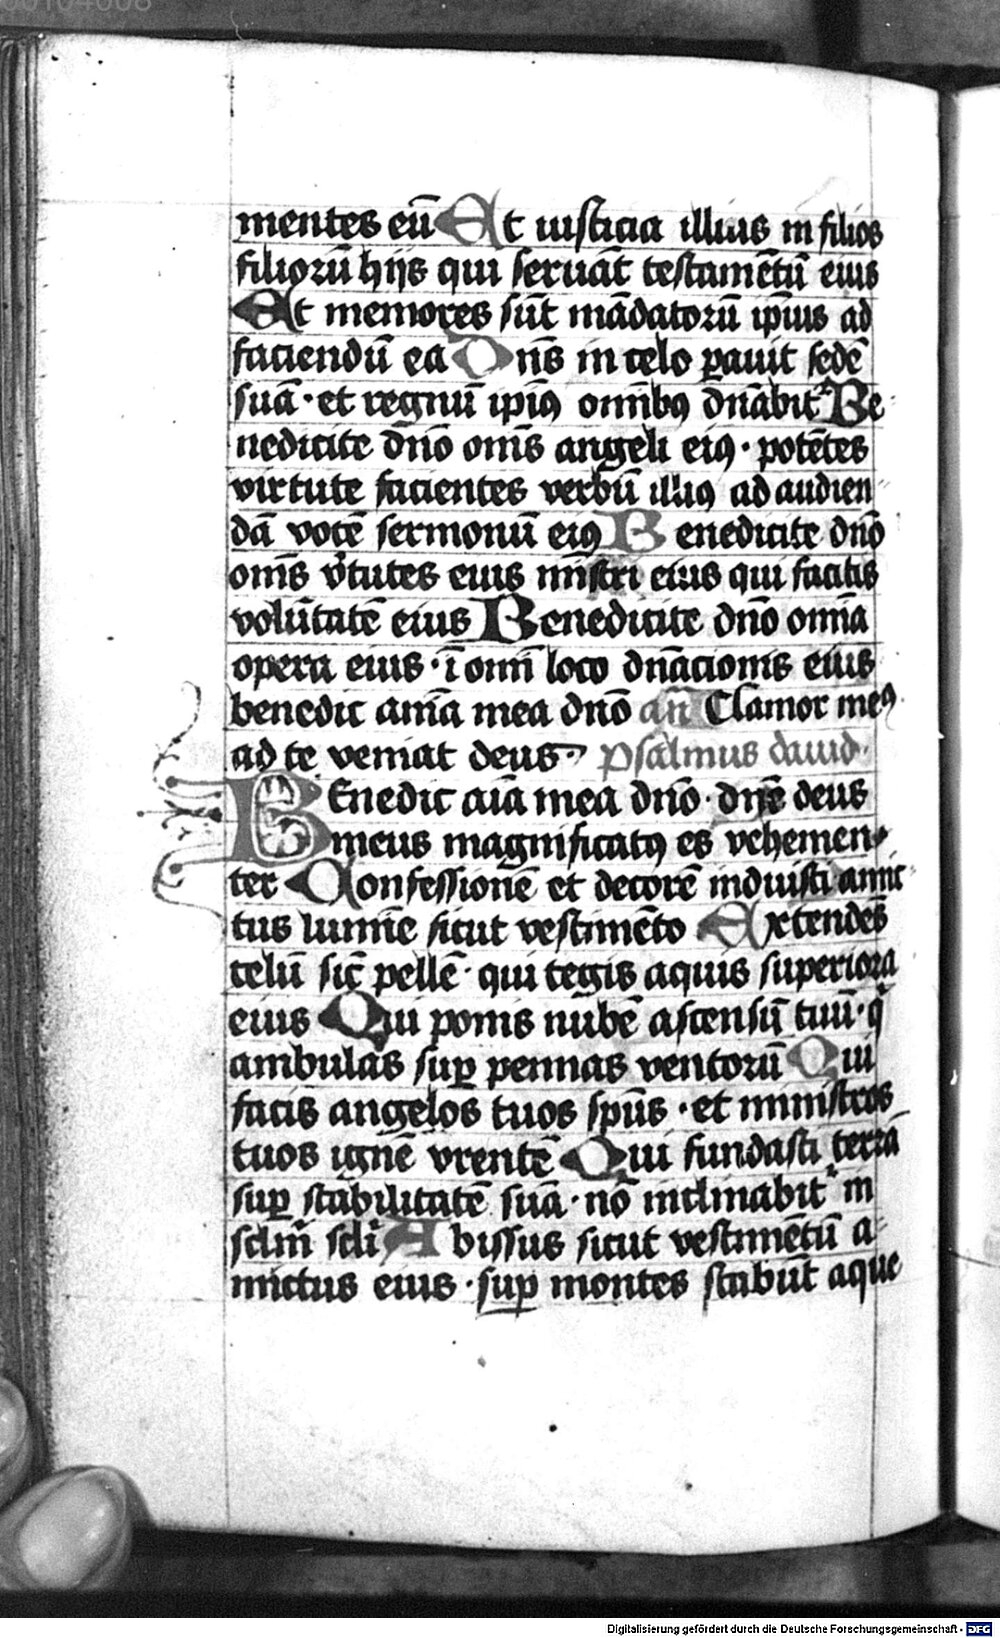 00104008
mentes eū Et iusticia illius in filios
filiorū hijs qui seruāt testamētū eius
Et memores sūt mādatorū ip̄ius ad
faciendū ea Dn̄s in celo ꝑauit sedē
suā · et regnū ip̄iꝯ om̄ibꝯ dn̄abit Be
nedicite dn̄o om̄s angeli eiꝯ · potētes
virtute facientes verbū illiꝯ ad audien
dā vocē sermonū eiꝯ Benedicite dn̄o
om̄s v̓tutes eius mīstri eius qui facitis
volūtatē eius Benedicite dn̄o om̄ia
opera eius · ī om̄i loco dn̄acionis eius
benedic aīma mea dn̄o an̄ Clamor meꝯ
ad te veniat deus · Psalmus dauid ·
BEnedic aīa mea dn̄o · dn̄e deus
meus magnificatꝯ es vehemen
ter Confessionē et decorē induisti amic
tus lumīe sicut vestimēto Extendēs
celū sic̄ pellē · qui tegis aquis superiora
eius Qui ponis nubē ascensū tuū · q̄
ambulas suꝑ pennas ventorū Qui
facis angelos tuos sp̄us · et ministros
tuos ignē vrentē Qui fundasti terrā
suꝑ stabilitatē suā · nō inclinabit᷑ in
sclm̄ scl̄i Abissus sicut vestimētū a
mictus eius · suꝑ montes stabūt aque
Digitalisierung gefördert durch die Deutsche Forschungsgemeinschaft - DFG